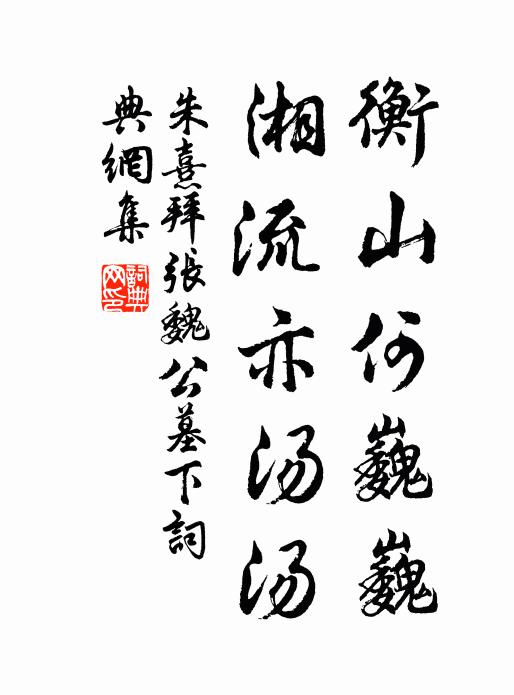 衡山何巍巍
湘流亦汤汤
朱熹拜張魏公墓下詞
典網集
詞典
网印